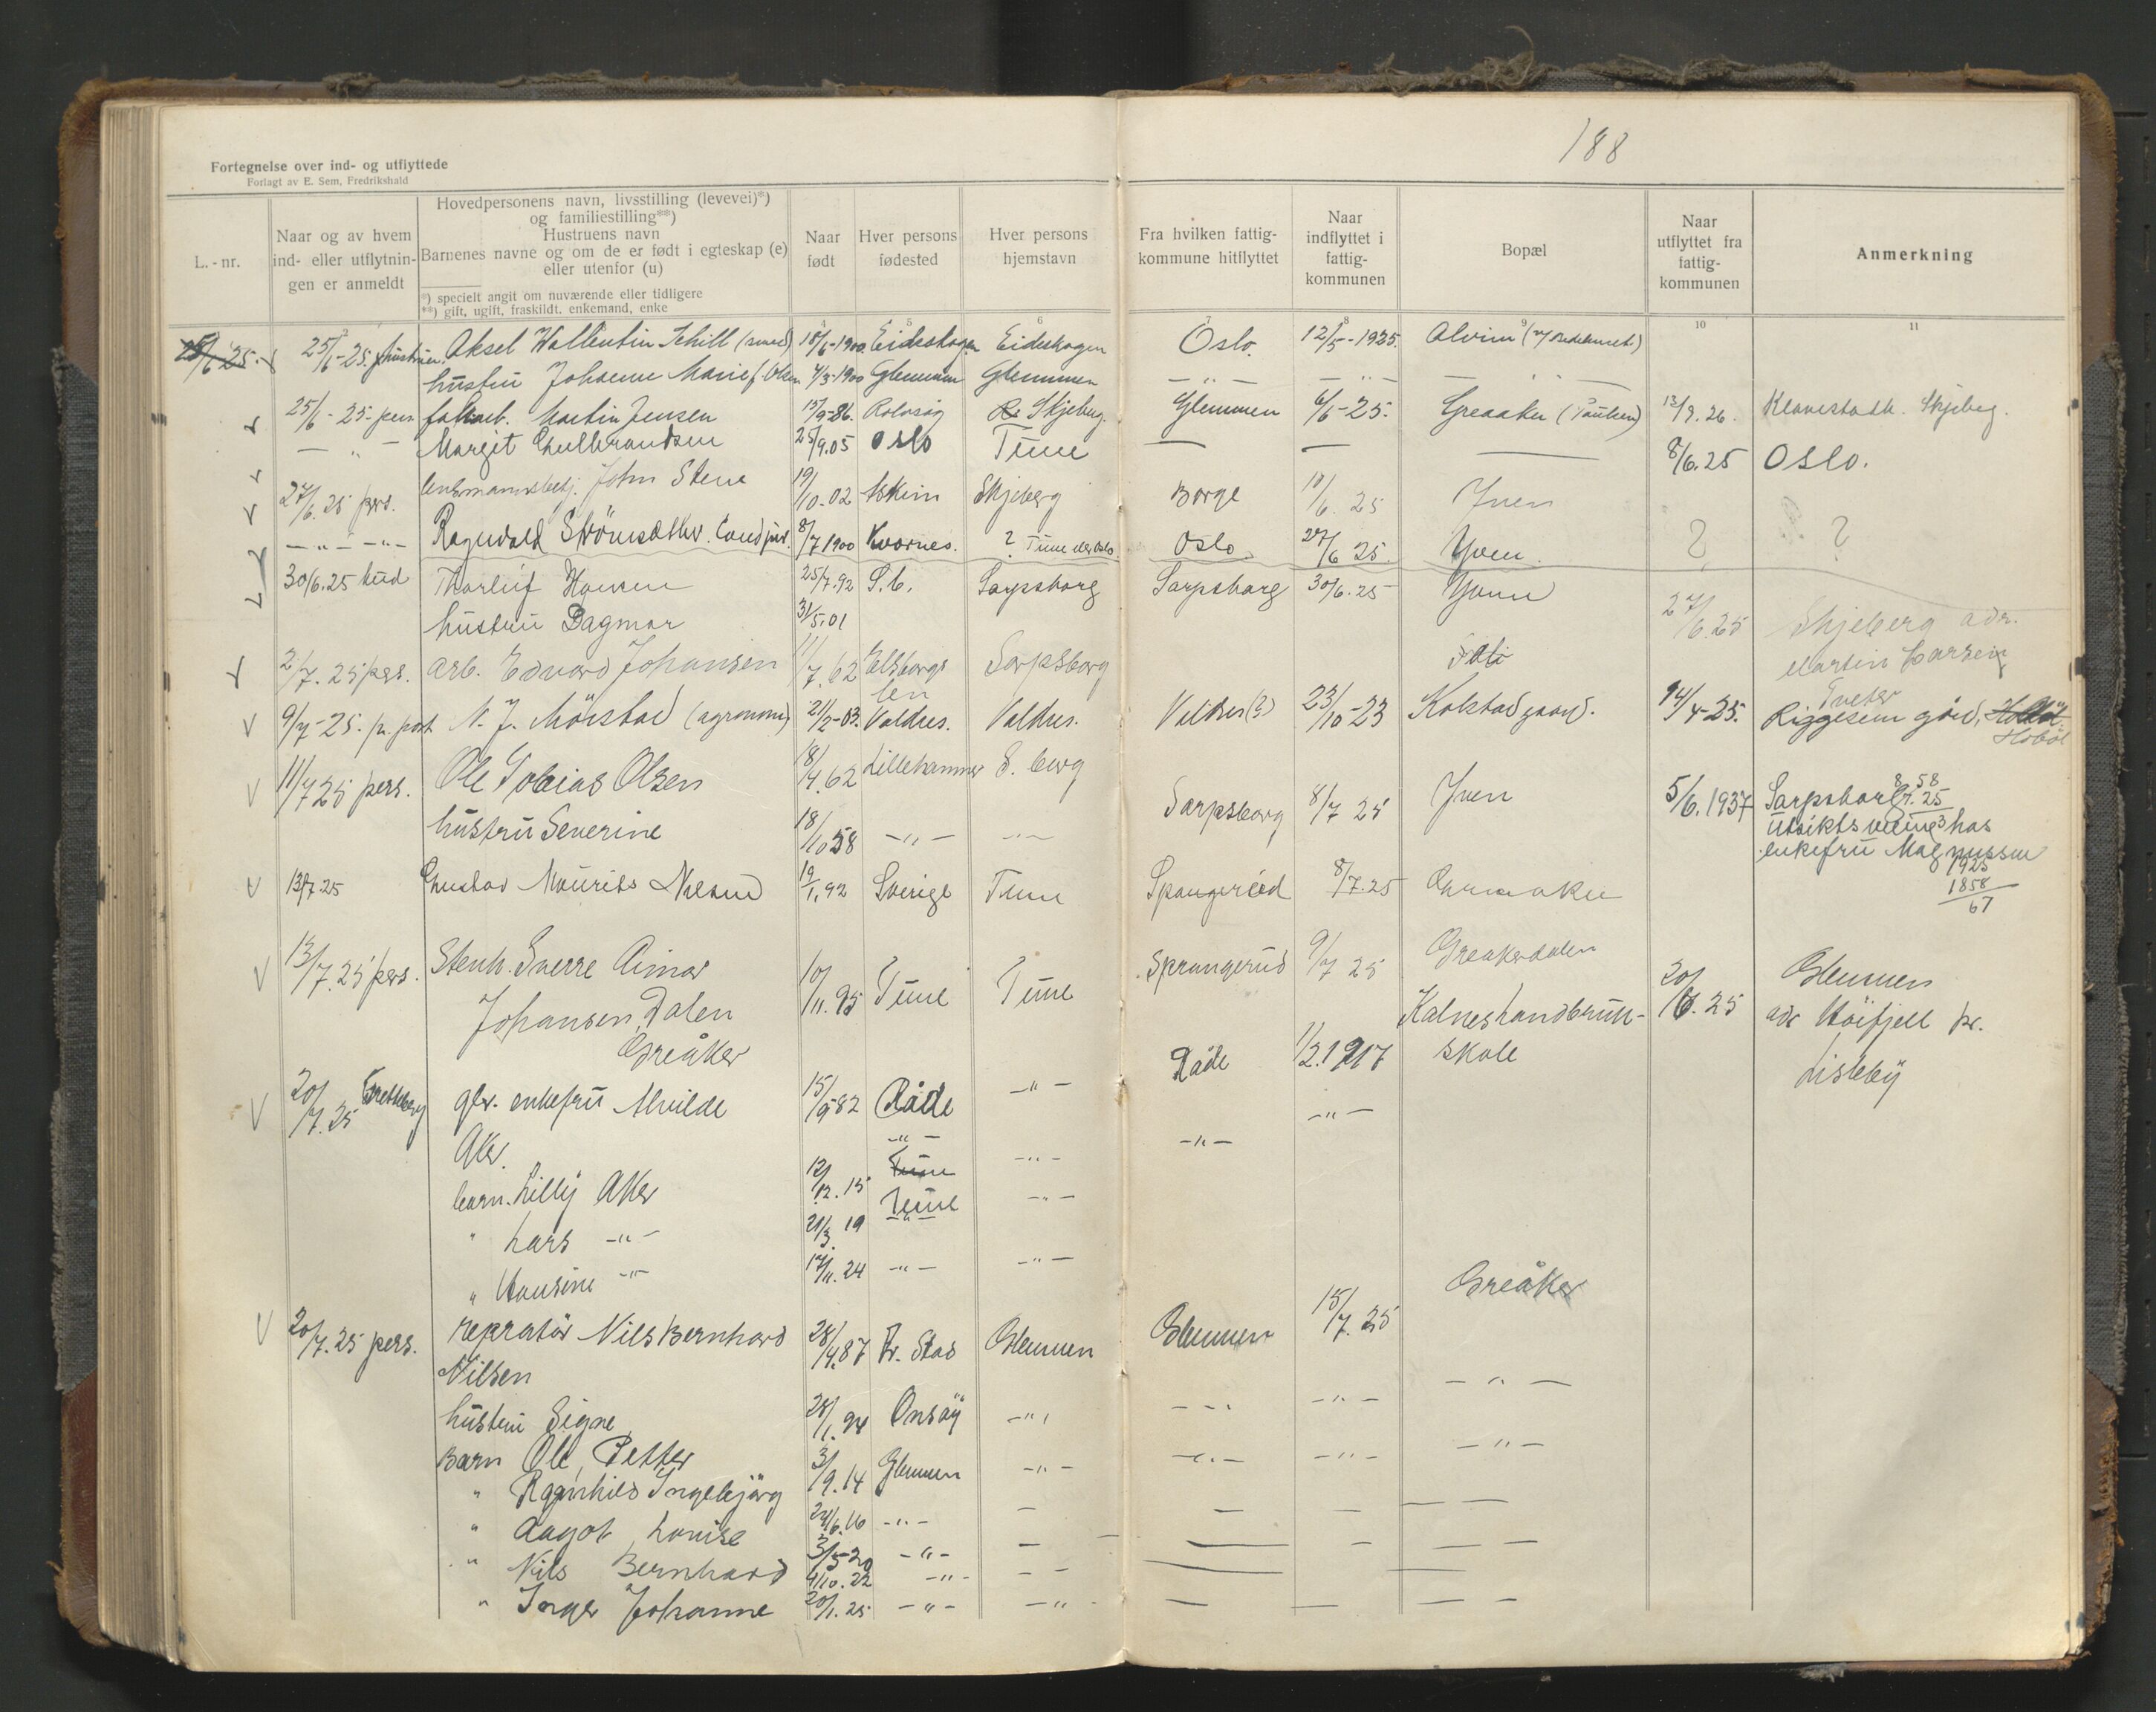 188
Fortegnelse over ind- og utflyttede
Forlagt av E. Sem, Fredrikshald
L.-nr.
Naar og av hvem ind- eller utflytnin-gen er anmeldt
Hovedpersonens navn, livsstilling (levevei)*)
og familiestilling**)
Hustruens navn
Barnenes navne og om de er født i egteskap (e)
eller utenfor (u)
*) specielt angit om nuværende eller tidligere
**) gift, ugift, fraskildt, enkemand, enke
Naar født
Hver persons fødested
Hver persons hjemstavn
Fra hvilken fattig-kommune hitflyttet
Naar indflyttet i fattig-kommunen
Bopæl
Naar utflyttet fra fattig-kommunen
Anmerkning
5 6 7 8 9 10 11
25/6 25. 25/6-25. hustruen. Aksel Wallentin Schill 18/6-1900 Eidsskogen Eidskogen Oslo. 12/5-1925. Alvim
hustru Johanne Marie f. Olsen 4/3-1900 Glemmen Glemmen
25/6-25 pers. Martin Jensen 15/9-86. Rolvsøy Skjeberg. Glemmen 6/6-25. Greaaker (Paulsen) 13/9.26. Klavestadh. Skjeberg.
— „ — Margit Gulbrandsen 25/9.05 Oslo Tune — — — 8/6.25 Oslo.
27/6.25 pers. lensmannsbetj. John Stene 19/10-02 Askim Skjeberg Borge 10/6.25 Yven
— „ — „ — Ragnvald Strömsæther. Cand jur. 8/7 1900 Kvernes. ? Tune eller Oslo Oslo. 27/6 25. Yven. ? ?
30/6.25 bud Thorleif Hansen 25/7.92 S.b. Sarpsborg Sarpsborg 30/6.25 Yven
hustru Dagmar 31/5.01
2/7.25 pers. arb. Edvard Johansen 11/7.62 Elfsborgs len Sarpsborg 27/6.25 Skjeberg adr.
Martin Larsen
Tveter
9/7-25. p. post N. J. Mörstad (agronom) 21/2-03. Valdres. Valdres. Valdres(?) 23/10-23 Kolstad gaard. 14/4-25. Riggesum gård, Hobøl
11/7 25 pers. Ole Tobias Olsen 18/4.62 Lillehammer S. berg Sarpsborg 8/7 25 Yven 5/6.1937 Sarpsborg
hustru Severine 18/10 58 — „ — — „ — Utsiktsveien 3 hos
enkefru Magnussen
1925
1858
67
13/7 25 Gustav Mourits Nilsen 19/1.92 Sverige Tune Spangeröd 8/7.25 Greaaker
13/7.25 pers. Stenh. Sverre Aimar 10/11.95 Tune Tune Sprangerud 9/7 25 Greakerdalen 20/6.25 Glemmen
Johansen, Dalen adr Höifjell pr.
Greåker Lisleby
20/7.25 Brettberg gbr. enkefru Alvilde 15/9 82 Råde — „ — Råde 1/2.1917 Kalneslandbruk-
skole
Aker. — „ — — „ — — „ —
barn. Lilly Aker 12/12.15 Tune — „ —
„ Lars — „ — 21/3.19 Tune — „ —
„ Hansine — „ — 17/11.24 — „ — — „ —
20/7.25 pers. repratör Nils Bernhard 28/4.87 Fr. Stad Glemmen Glemmen 15/7.25 Greåker
Nilsen
hustru Signe 28/1.94 Onsöy — „ — — „ — — „ — — „ —
Barn Ole, Petter 3/9.14 Glemmen — „ — — „ — — „ — — „ —
„ Ragnhild Ingebjörg 24/6.16 — „ — — — — —
„ Aagot, Louise 3/5-20 — „ — — — — —
„ Nils Bernhard 4/10.22 — „ — — — —
„ Inger Johanne 20/1.25 — „ — — „ — — — —